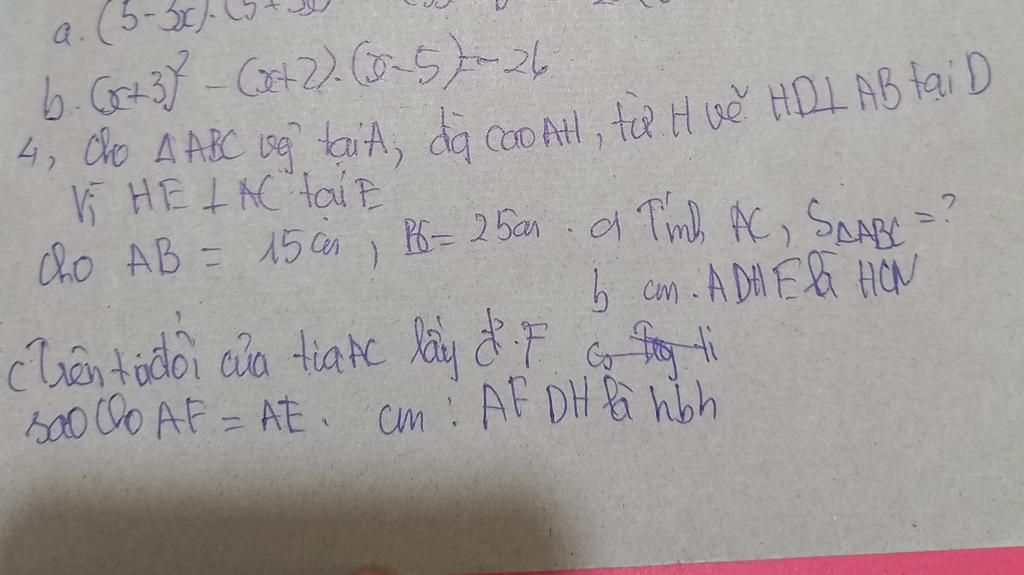 a. (5-3x).(5+3x)
b. (x+3)² - (x+2).(x-5) = -26
4, Cho △ABC vg tại A, đg cao AH, từ H vẽ HD⊥AB tại D
Vị HE⊥AC tại E
Cho AB = 15cm, BC = 25cm. a Tính AC, S△ABC = ?
b cm. ADHE là HCN
c Trên tia đối của tia AC lấy đ. F
sao cho AF = AE. cm: AFDH là hbh